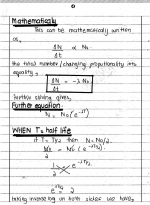 Mathematically
This can be mathematically written
as,
dN ∝ N.
dt
the total number/changing proportionality into
equality,
dN = -λN.
dt
further solving gives,
Further equation.
N = N₀(e^-λT)
WHEN T = half life
if T = T½ then N = N₀/2.
N₀ = N₀(e^-λT½).
2
1 = e^-λT½
2
e^λT½ = 2
taking inversing on both sides we have,